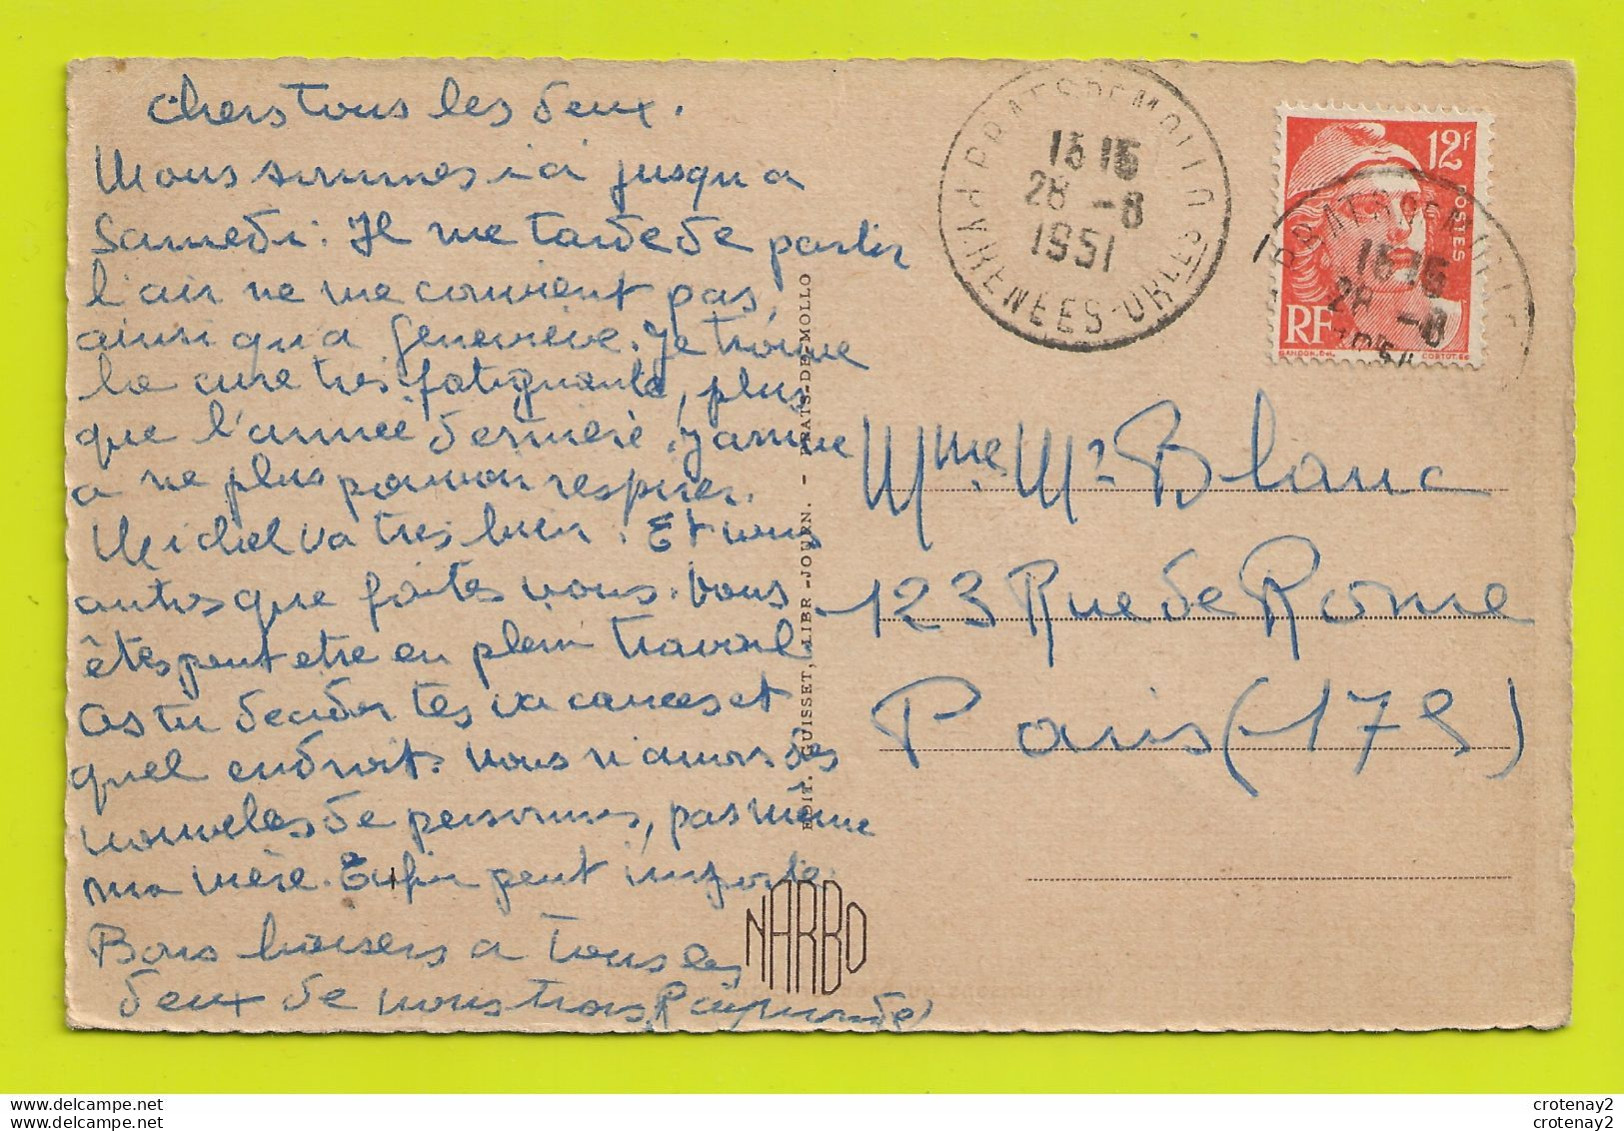 Chers tous les deux.
Nous sommes ici jusqu'a
Samedi. Il me tarde de partir
l'air ne me convient pas,
ainsi qu'a Geneviève. Je trouve
la cure tres fatiguante, plus
que l'année dernière. J'arrive
a ne plus pouvoir respirer.
Michel va tres bien. Et vous
autres que faites vous. Vous
êtes peut etre en plein travail
As tu decider tes vacances et
quel endroit. Nous n'avons des
nouvelles de personnes, pas même
ma mère. Enfin peut importe.
Bons baisers a tous les
deux de nous trois Raymonde
EDIT. GUISSET, LIBR-JOURN. - PRATS-DE-MOLLO
NARBO
PRATS DE MOLLO
PYRENEES-ORLES
15 15
28 -8
1951
12F
POSTES
RF
GANDON. Del.
CORTOT. Sc
15 15
28 -8
1951
Mme Mr Blanc
123 Rue de Rome
Paris (17e)
www.delcampe.net
www.delcampe.net
crotenay2
crotenay2